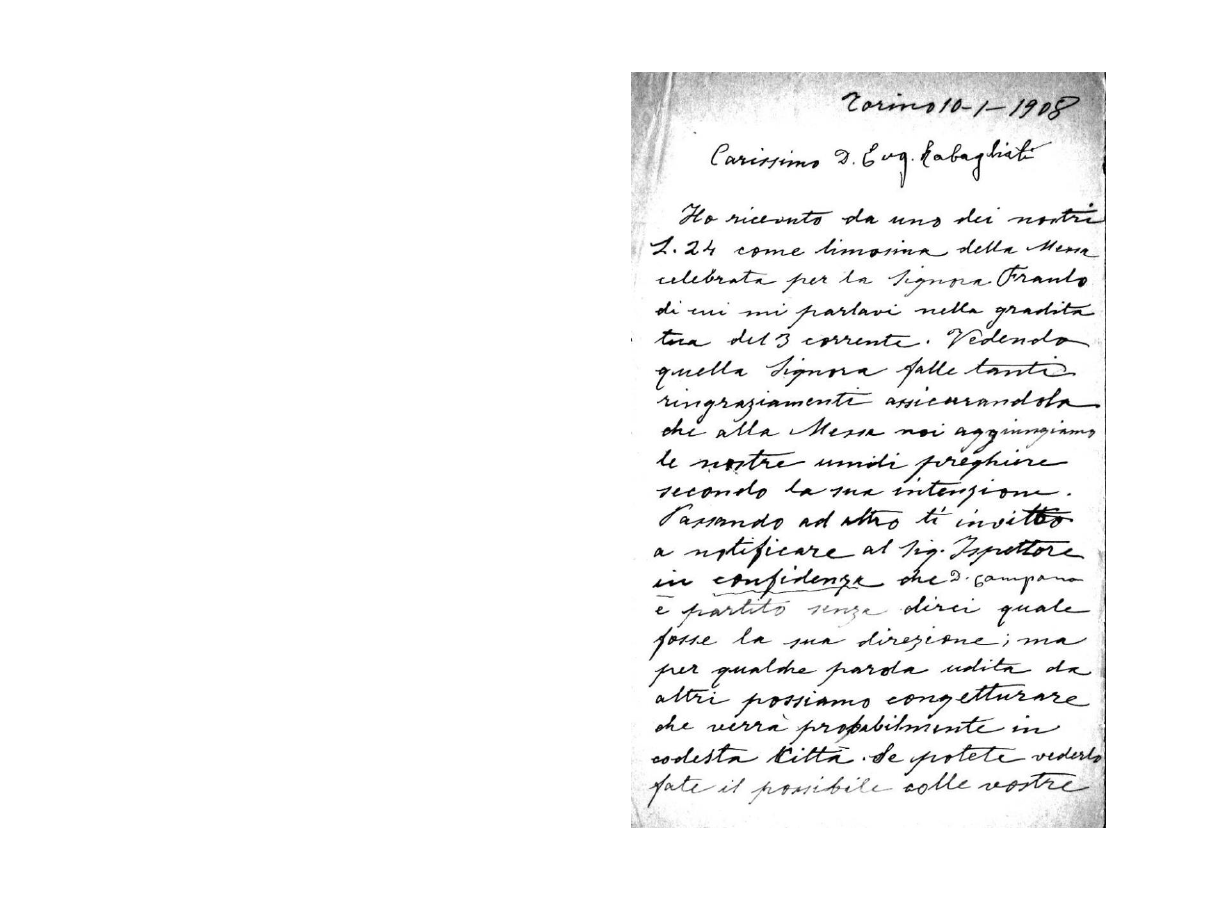 Torino 10-1-1908
Carissimo D. Evg. Rabagliati
Ho ricevuto da uno dei nostri
L. 24 come limosina della Messa
celebrata per la Signora
di cui mi parlavi nella gradita
tua del 3 corrente. Vedendo
quella Signora falle tanti
ringraziamenti assicurandola
che alla Messa noi aggiungiamo
le nostre umili preghiere
secondo la sua intenzione.
Passando ad altro ti invito
a notificare al Sig. Ispettore
in confidenza che D. Campana
è partito senza dirci quale
fosse la sua direzione; ma
per qualche parola udita da
altri possiamo congetturare
che verrà probabilmente in
codesta Città. Se potete vederlo
fate il possibile colle vostre